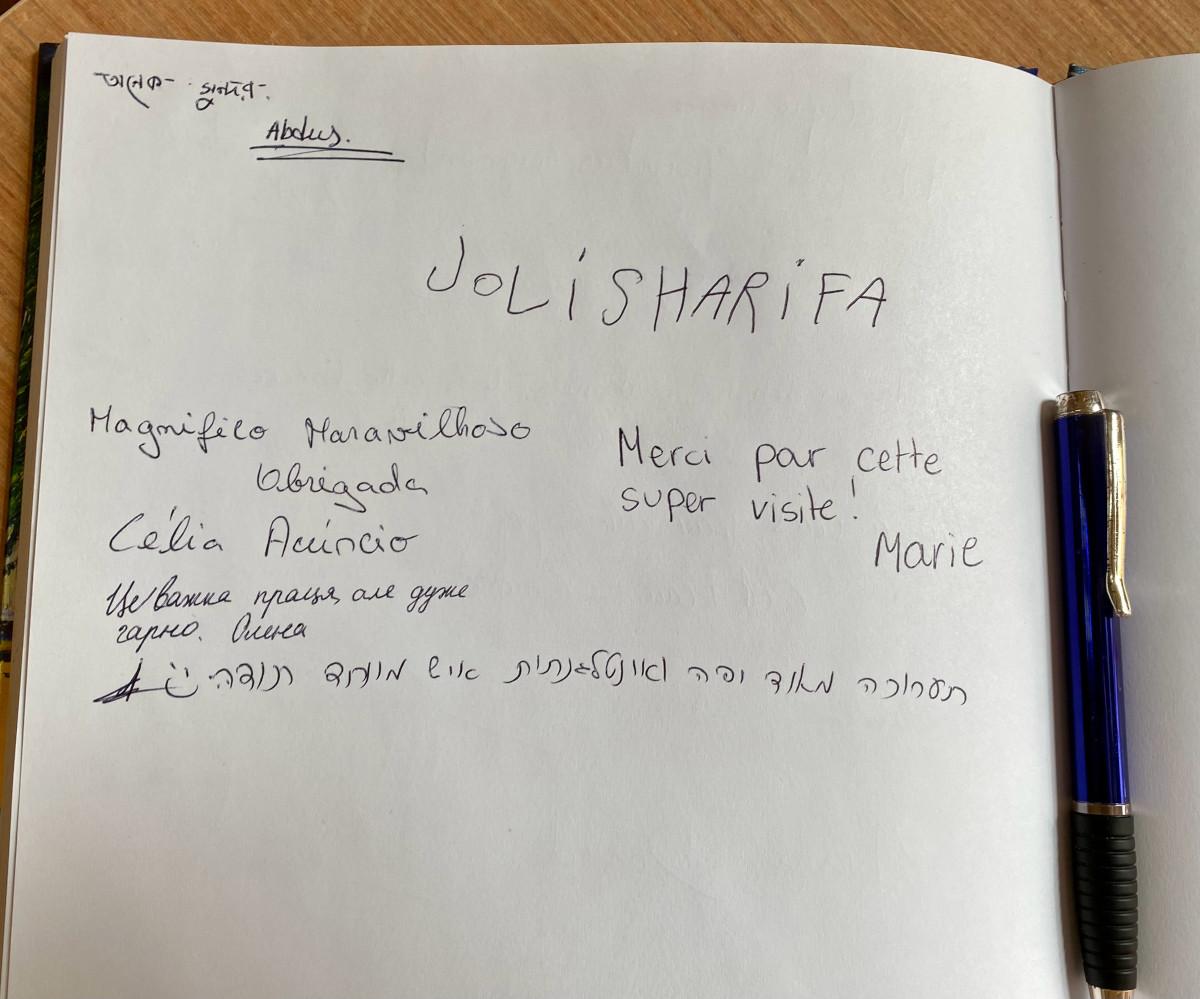 অনেক সুন্দর
Abdus.
JOLi SHARiFA
Magnifico Maravilhoso
Obrigada
Célia
Merci pour cette
super visite!
Marie
Це важка праця, але дуже
гарно. Олена
תערוכה מאוד יפה ואינטלגנטית איש תודה